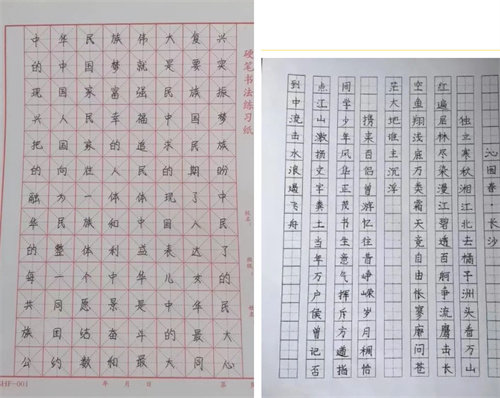 中华民族伟大复兴
的中国梦就是要实
现国家富强民族振
兴人民幸福中国梦
把国家的追求民族
的向往人民的期盼
融为一体体现了中
华民族和中国人民
的整体利益表达了
每一个中华儿女的
共同愿景是中华民
族团结奋斗的最大
公约数和最大同心
硬笔书法练习纸
HF-001 年 月 日 第
沁园春·长沙
独立寒秋湘江北去橘子洲头看万山
红遍层林尽染漫江碧透百舸争流鹰击长
空鱼翔浅底万类霜天竞自由怅寥廓问苍
茫大地谁主沉浮
携来百侣曾游忆往昔峥嵘岁月稠恰
同学少年风华正茂书生意气挥斥方遒指
点江山激扬文字粪土当年万户侯曾记否
到中流击水浪遏飞舟